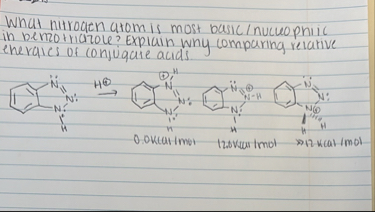 What nitrogen atom is most basic/nucleophilic
in benzotriazole? Explain why comparing relative
energies of conjugate acids.
H⊕
⊕ H
N N N H
N N⊕ -H N H
N N N⊕ H H
0.0 kcal/mol 12.0 kcal/mol >>12 kcal/mol